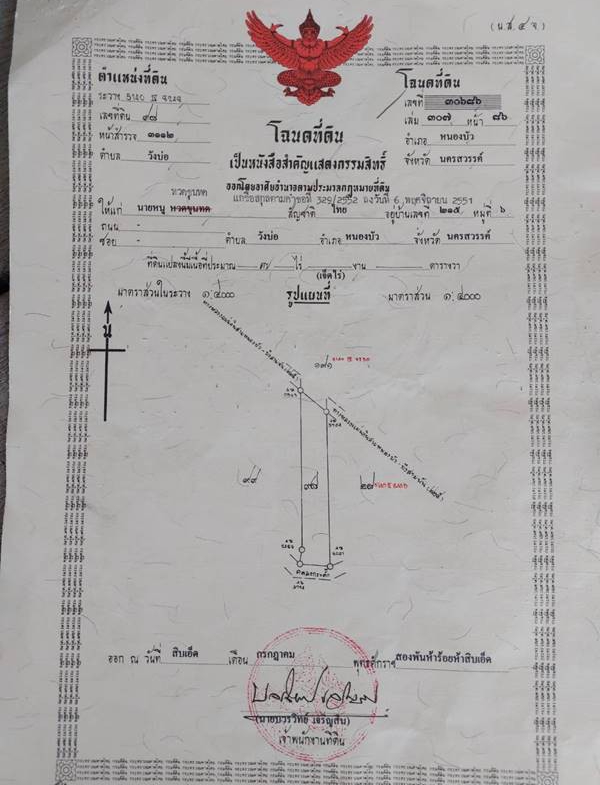 (น.ส. ๔ จ)
ตำแหน่งที่ดิน
ระวาง 5140 IV
เลขที่ดิน
หน้าสำรวจ ๓๑๑๒
ตำบล วังบ่อ
โฉนดที่ดิน
เลขที่ ๓๐๖๘๖
เล่ม ๓๐๗ หน้า ๘๖
อำเภอ หนองบัว
จังหวัด นครสวรรค์
โฉนดที่ดิน
เป็นหนังสือสำคัญแสดงกรรมสิทธิ์
ออกโดยอาศัยอำนาจตามประมวลกฎหมายที่ดิน
แก้ชื่อสกุลตามคำขอที่ 329/2552 ลงวันที่ 6 พฤศจิกายน 2551
ให้แก่ นายหนู สัญชาติ ไทย อยู่บ้านเลขที่ ๒๑๕ หมู่ที่ ๖
ถนน -
ซอย - ตำบล วังบ่อ อำเภอ หนองบัว จังหวัด นครสวรรค์
ที่ดินแปลงนี้มีเนื้อที่ประมาณ ๗ ไร่ - งาน - ตารางวา
(เจ็ดไร่)
มาตราส่วนในระวาง ๑:๔๐๐๐ รูปแผนที่ มาตราส่วน ๑:๔๐๐๐
น
๑๗๑
๙๙
๒๗
ออก ณ วันที่ สิบเอ็ด เดือน กรกฎาคม พุทธศักราช สองพันห้าร้อยห้าสิบเอ็ด
(นายบวรวิทย์ เจริญสิน)
เจ้าพนักงานที่ดิน